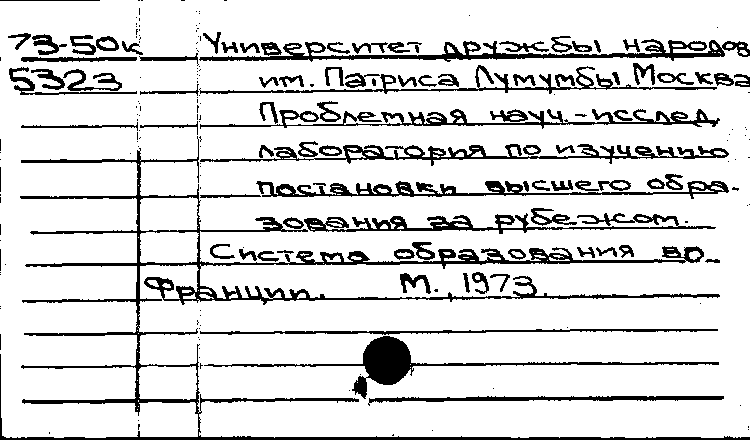 73-50к Университет дружбы народов
5323 им. Патриса Лумумбы. Москва
Проблемная науч.-исслед.
лаборатория по изучению
постановки высшего обра-
зования за рубежом.
Система образования во
Франции. М., 1973.